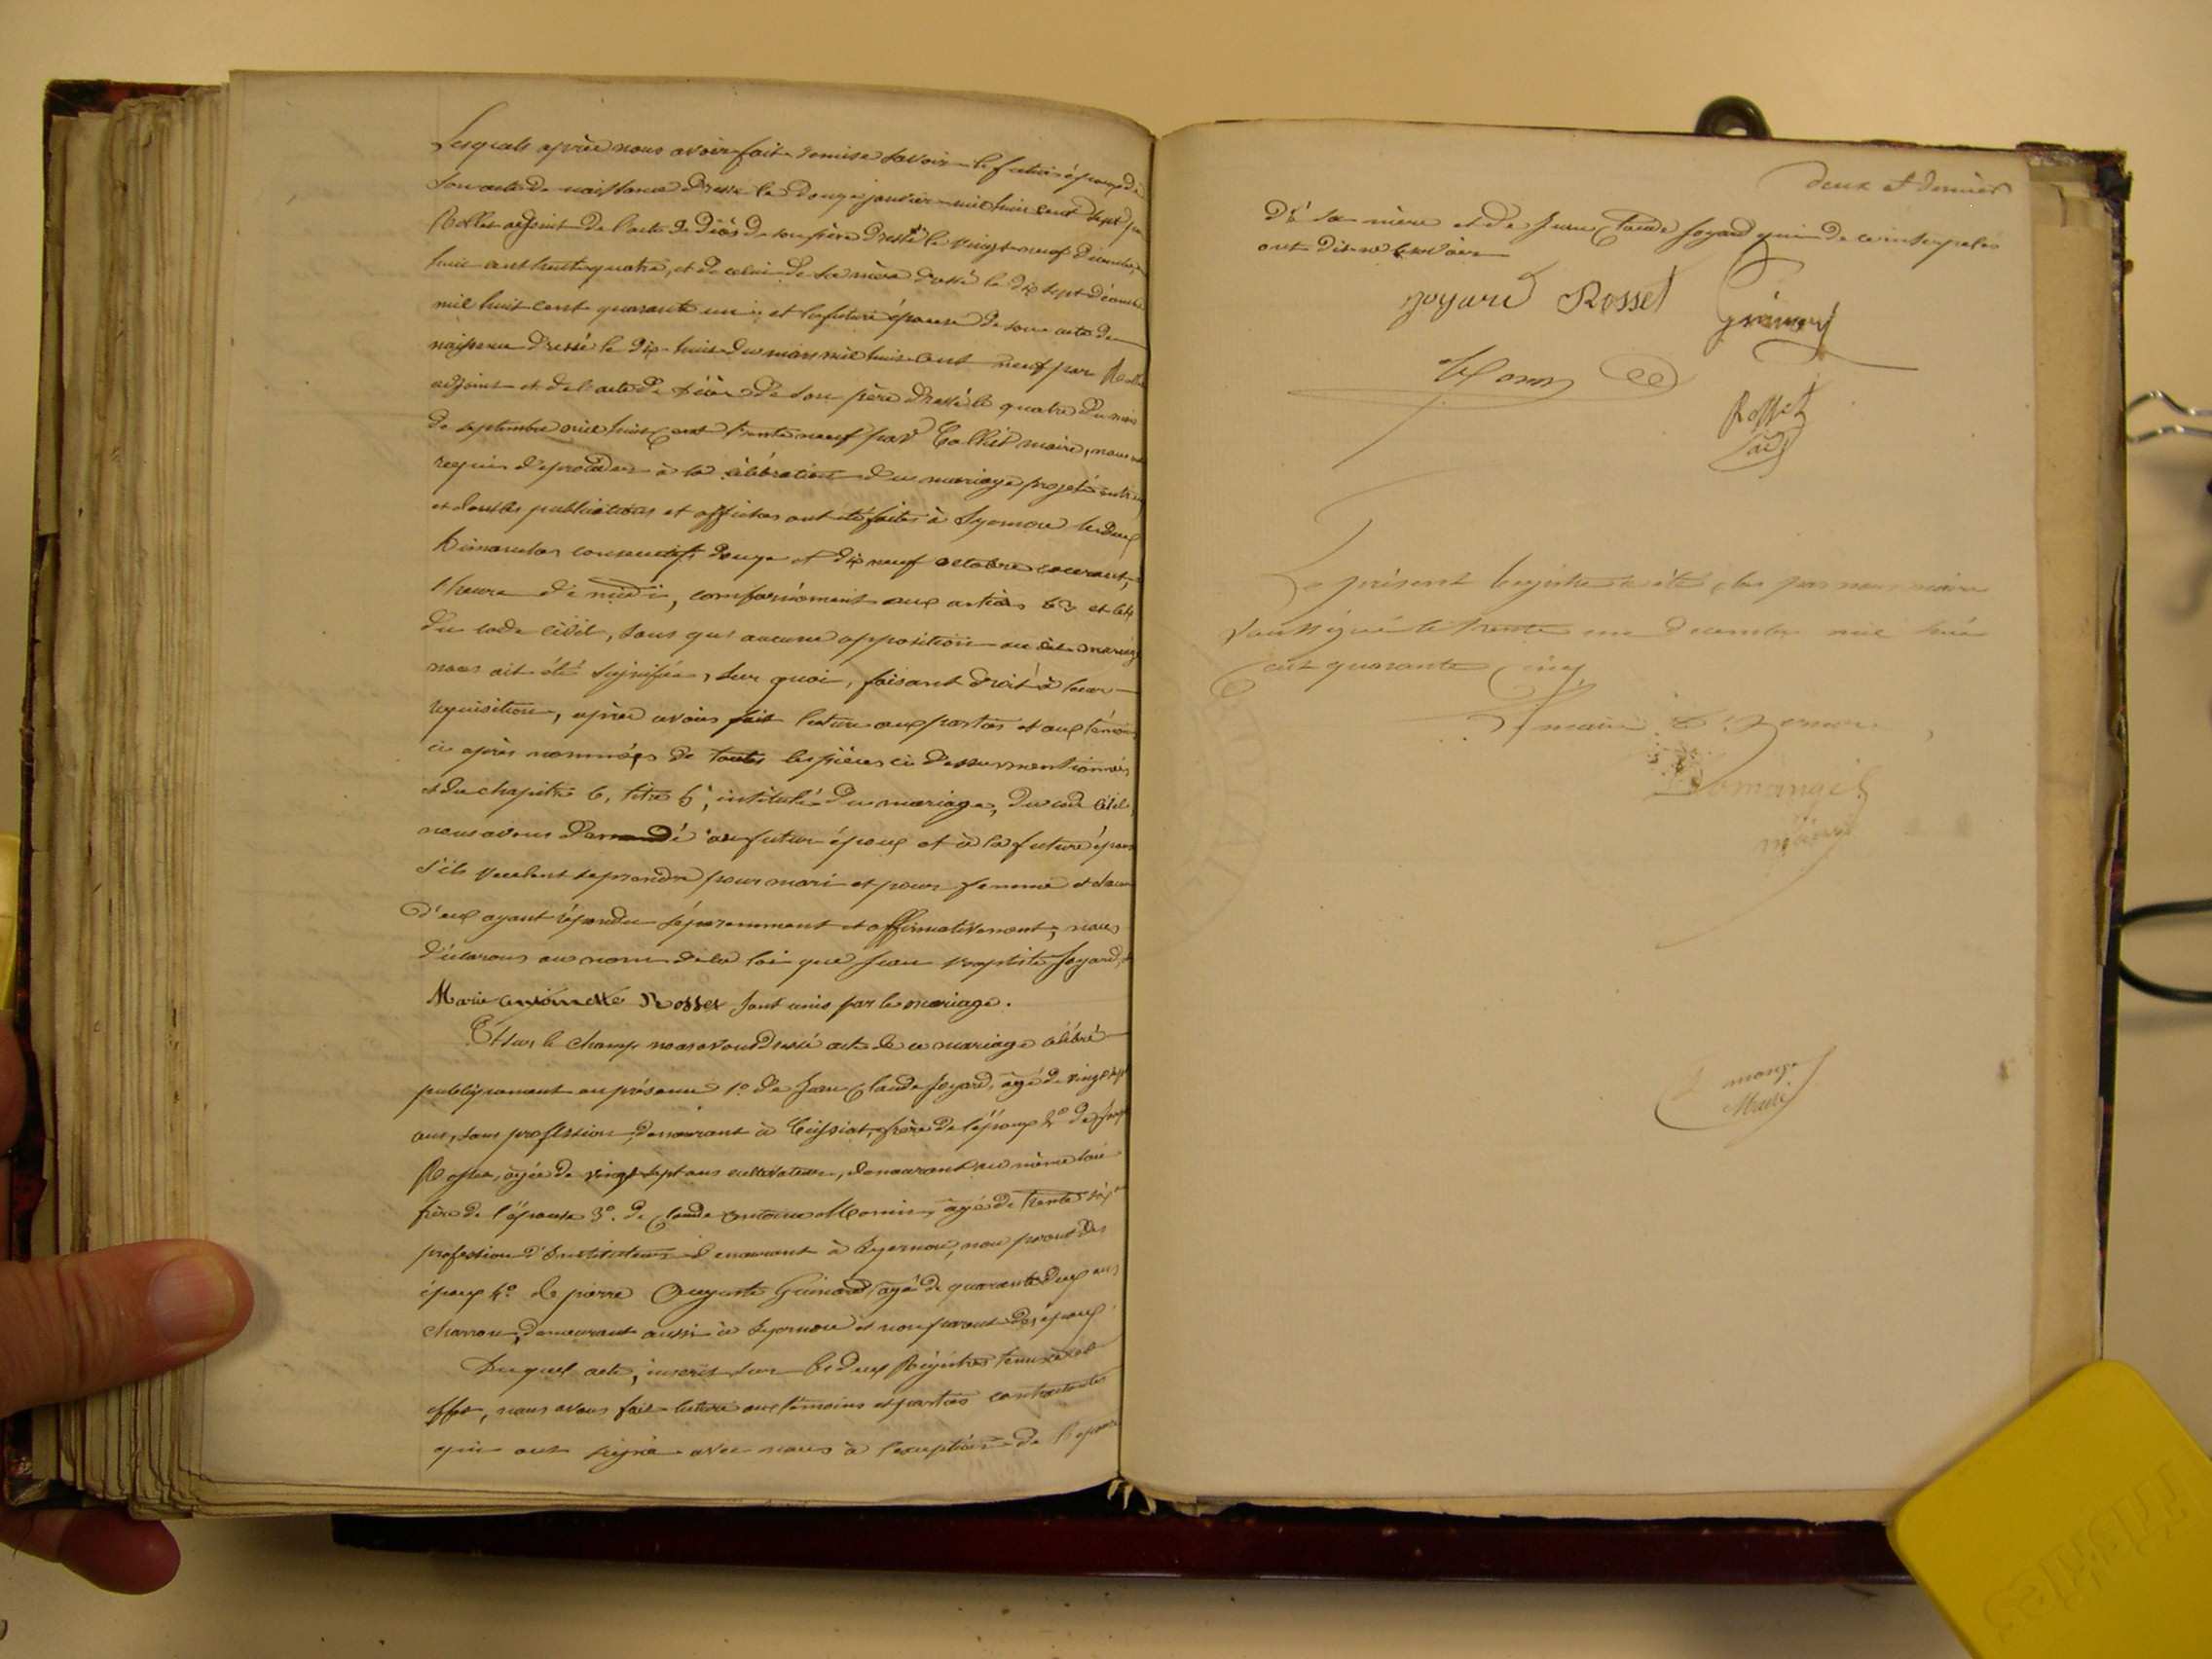 Lesquels après nous avoir fait remise savoir le futur époux de
son acte de naissance dressé le douze janvier mil huit cent sept par
Rollet adjoint de l'acte de décès de son père dressé le vingt neuf décembre
huit cent trente quatre, et de celui de sa mère dressé le dix sept décembre
mil huit cent quarante un et la future épouse de son acte de
naissance dressé le dix-huit du mois mil huit cent neuf par Rollet
adjoint et de l'acte de décès de son père dressé le quatre du mois
de septembre mil huit cent trente neuf par maire, nous ont
requis de procéder à la célébration du mariage projeté entre eux
et dont les publications et affiches ont été faites à Lyornou les deux
dimanches consecutifs douze et dix neuf octobre courant,
l'heure de midi, conformément aux articles 63 et 64
du code civil, sans que aucune opposition au dit mariage
nous ait été signifiée, sur quoi, faisant droit à leur
requisition, après avoir fait lecture aux parties et aux témoins
ci après nommés de toutes les pièces ci dessus mentionnées
et du chapitre 6, titre 5, intitulé du mariage, du code civil
nous avons demandé au futur époux et à la future épouse
s'ils veulent se prendre pour mari et pour femme et chacun
d'eux ayant répondu séparemment et affirmativement, nous
déclarons au nom de la loi que Jean Baptiste Joyard, et
Marie antoinette Rosset sont unis par le mariage.
Et sur le champ nous avons dressé acte de ce mariage célébré
publiquement en présence 1o de Jean Claude Joyard, âgé de vingt sept
ans, sans profession demeurant à Cuissiat, frère de l'époux 2o de
Rosset, âgé de vingt sept ans cultivateur, demeurant au même lieu
frère de l'épouse 3o. de Claude antoine Monin, âgé de trente six
profession d'Instituteur demeurant à non parent des
époux 4o de pierre Auguste âgé de quarante deux ans
charron, demeurant aussi à et non parent des époux.
Duquel acte, inscrit sur les deux Régistres tenus à cet
effet, nous avons fait lecture aux témoins et parties contractantes
qui ont signé avec nous à l'exception de l'épouse
deux et dernier
de sa mère et de Jean Claude Joyard qui de ce interpelés
ont dit ne savoir
joyard Rosset
Monin
Rosset
Le présent registre a été clos par nous maire
soussigné le trente un decembre mil huit
cent quarante cinq
Le maire de
Domange
maire
Domange
Maire